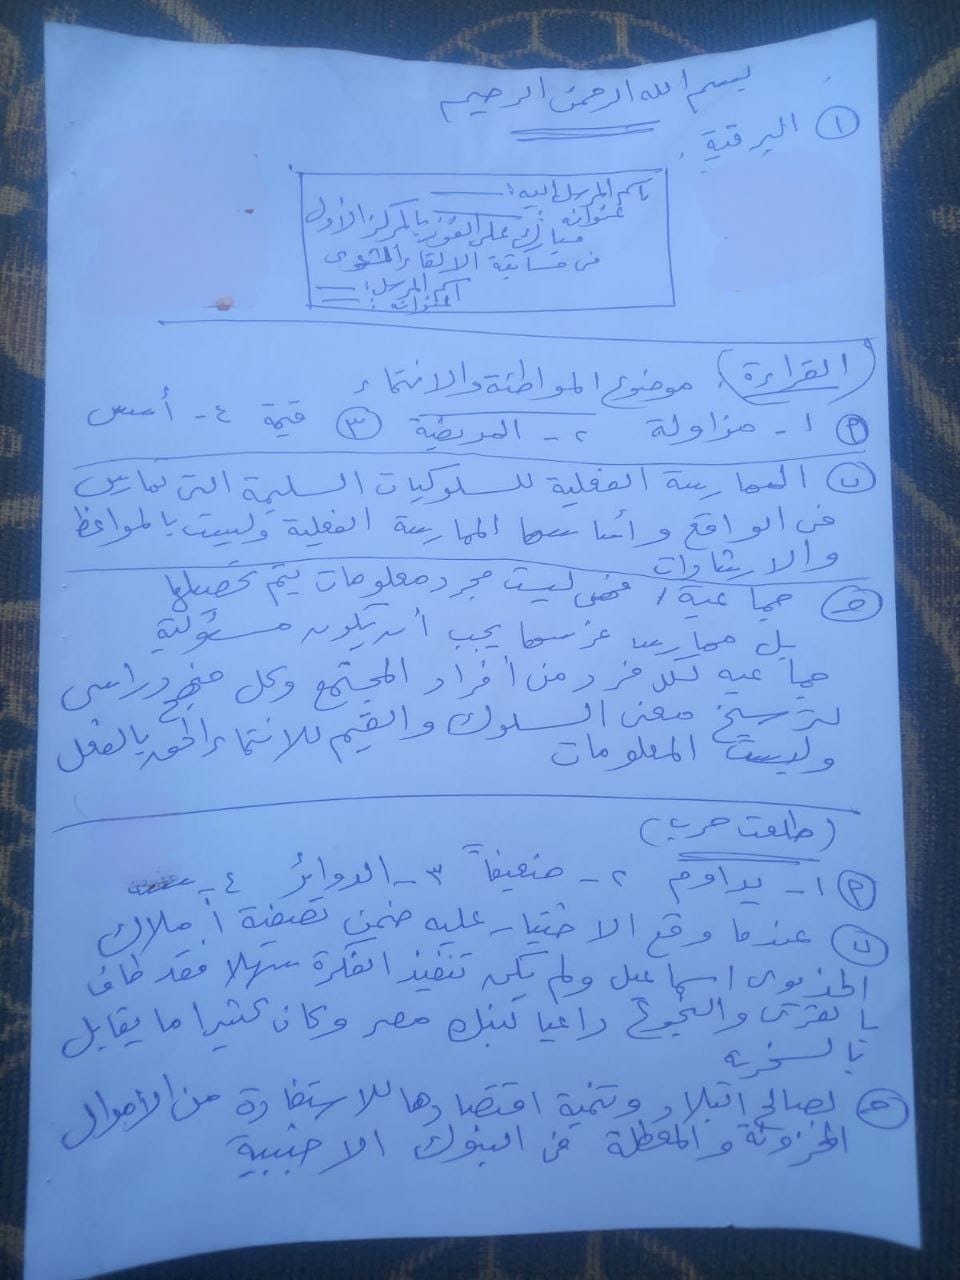 بسم الله الرحمن الرحيم
١ البرقية:
باسم المرسل إليه:
عنوانه
مبارك على الفوز بالمركز الأول
فى مسابقة الالقاء الشعرى
اسم المرسل:
عنوانه:
القراءة: موضوع المواطنة والانتماء
P ١- مزاولة ٢- المريضة ٣ قيمة ٤- أسس
ب الممارسة الفعلية للسلوكيات السليمة التى تمارس
فى الواقع وأساسها الممارسة الفعلية وليست بالمواعظ
والارشادات
ج جماعية / فهى ليست مجرد معلومات يتم تحصيلها
بل ممارس غرسها يجب أن يكون مسئولية
جماعيه لكل فرد من أفراد المجتمع وكل منهج دراسى
لترسيخ معنى السلوك والقيم للانتماء الحق بالفعل
وليست المعلومات
(طلعت حرب)
P ١- يداوم ٢- ضعيفاً ٣- الدوائر ٤-
ب عندما وقع الاختيار عليه ضمن تصفية أملاك
الخديوى اسماعيل ولم يكن تنفيذ الفكرة سهلا فقد طاف
بالقرى والنجوع داعيا لبنك مصر وكان كثيرا ما يقابل
بالسخريه
ج لصالح البلاد وتنمية اقتصادها للاستفادة من الأموال
المخزونة والمعطلة فى البنوك الاجنبية